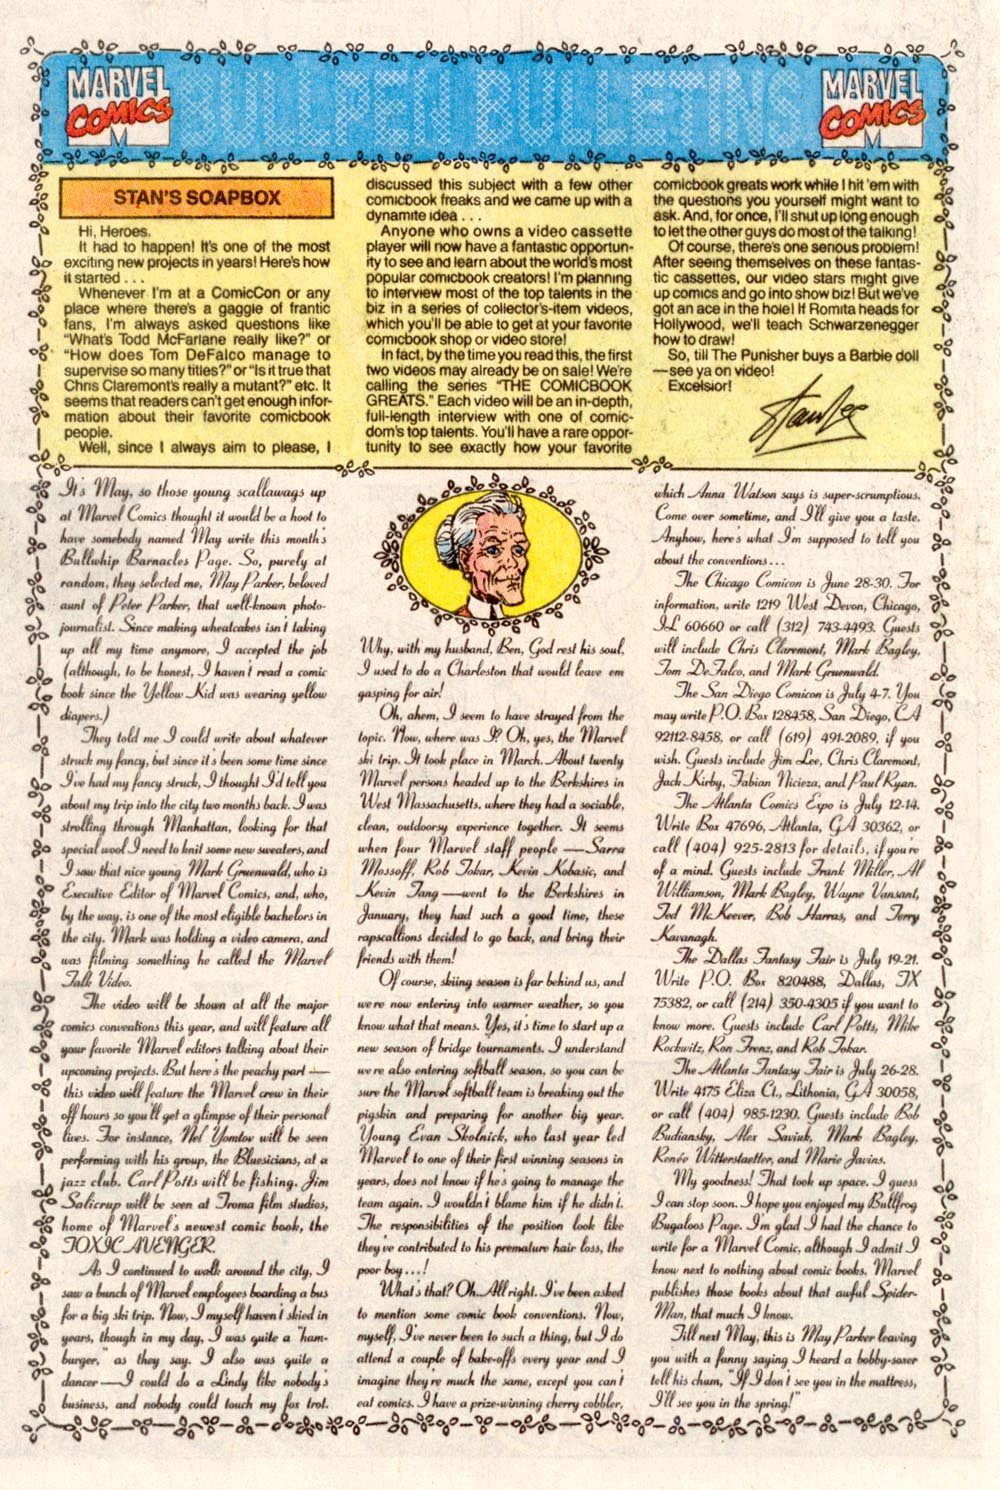 MARVEL
COMICS
M
BULLPEN BULLETINS
MARVEL
COMICS
M
STAN'S SOAPBOX
Hi, Heroes.
It had to happen! It's one of the most
exciting new projects in years! Here's how
it started . . .
Whenever I'm at a ComicCon or any
place where there's a gaggle of frantic
fans, I'm always asked questions like
"What's Todd McFarlane really like?" or
"How does Tom DeFalco manage to
supervise so many titles?" or "Is it true that
Chris Claremont's really a mutant?" etc. It
seems that readers can't get enough infor-
mation about their favorite comicbook
people.
Well, since I always aim to please, I
discussed this subject with a few other
comicbook freaks and we came up with a
dynamite idea . . .
Anyone who owns a video cassette
player will now have a fantastic opportun-
ity to see and learn about the world's most
popular comicbook creators! I'm planning
to interview most of the top talents in the
biz in a series of collector's-item videos,
which you'll be able to get at your favorite
comicbook shop or video store!
In fact, by the time you read this, the first
two videos may already be on sale! We're
calling the series "THE COMICBOOK
GREATS." Each video will be an in-depth,
full-length interview with one of comic-
dom's top talents. You'll have a rare oppor-
tunity to see exactly how your favorite
comicbook greats work while I hit 'em with
the questions you yourself might want to
ask. And, for once, I'll shut up long enough
to let the other guys do most of the talking!
Of course, there's one serious problem!
After seeing themselves on these fantas-
tic cassettes, our video stars might give
up comics and go into show biz! But we've
got an ace in the hole! If Romita heads for
Hollywood, we'll teach Schwarzenegger
how to draw!
So, till The Punisher buys a Barbie doll
—see ya on video!
Excelsior!
Stan Lee
It's May, so those young scallawags up
at Marvel Comics thought it would be a hoot to
have somebody named May write this month's
Bullwhip Barnacles Page. So, purely at
random, they selected me, May Parker, beloved
aunt of Peter Parker, that well-known photo-
journalist. Since making wheatcakes isn't taking
up all my time anymore, I accepted the job
(although, to be honest, I haven't read a comic
book since the Yellow Kid was wearing yellow
diapers.)
They told me I could write about whatever
struck my fancy, but since it's been some time since
I've had my fancy struck, I thought I'd tell you
about my trip into the city two months back. I was
strolling through Manhattan, looking for that
special wool I need to knit some new sweaters, and
I saw that nice young Mark Gruenwald, who is
Executive Editor of Marvel Comics, and, who,
by the way, is one of the most eligible bachelors in
the city. Mark was holding a video camera, and
was filming something he called the Marvel
Talk Video.
The video will be shown at all the major
comics conventions this year, and will feature all
your favorite Marvel editors talking about their
upcoming projects. But here's the peachy part —
this video will feature the Marvel crew in their
off hours so you'll get a glimpse of their personal
lives. For instance, Nel Yomtov will be seen
performing with his group, the Bluesicians, at a
jazz club. Carl Potts will be fishing. Jim
Salicrup will be seen at Troma film studios,
home of Marvel's newest comic book, the
TOXIC AVENGER.
As I continued to walk around the city, I
saw a bunch of Marvel employees boarding a bus
for a big ski trip. Now, I myself haven't skied in
years, though in my day, I was quite a "ham-
burger," as they say. I also was quite a
dancer—I could do a Lindy like nobody's
business, and nobody could touch my fox trot.
Why, with my husband, Ben, God rest his soul,
I used to do a Charleston that would leave 'em
gasping for air!
Oh, ahem, I seem to have strayed from the
topic. Now, where was I? Oh, yes, the Marvel
ski trip. It took place in March. About twenty
Marvel persons headed up to the Berkshires in
West Massachusetts, where they had a sociable,
clean, outdoorsy experience together. It seems
when four Marvel staff people —Sarra
Mossoff, Rob Tokar, Kevin Kobasic, and
Kevin Tang—went to the Berkshires in
January, they had such a good time, these
rapscallions decided to go back, and bring their
friends with them!
Of course, skiing season is far behind us, and
we're now entering into warmer weather, so you
know what that means. Yes, it's time to start up a
new season of bridge tournaments. I understand
we're also entering softball season, so you can be
sure the Marvel softball team is breaking out the
pigskin and preparing for another big year.
Young Evan Skolnick, who last year led
Marvel to one of their first winning seasons in
years, does not know if he's going to manage the
team again. I wouldn't blame him if he didn't.
The responsibilities of the position look like
they've contributed to his premature hair loss, the
poor boy...!
What's that? Oh. All right. I've been asked
to mention some comic book conventions. Now,
myself, I've never been to such a thing, but I do
attend a couple of bake-offs every year and I
imagine they're much the same, except you can't
eat comics. I have a prize-winning cherry cobbler,
which Anna Watson says is super-scrumptious.
Come over sometime, and I'll give you a taste.
Anyhow, here's what I'm supposed to tell you
about the conventions...
The Chicago Comicon is June 28-30. For
information, write 1219 West Devon, Chicago,
IL 60660 or call (312) 743-4493. Guests
will include Chris Claremont, Mark Bagley,
Tom DeFalco, and Mark Gruenwald.
The San Diego Comicon is July 4-7. You
may write P.O. Box 128458, San Diego, CA
92112-8458, or call (619) 491-2089, if you
wish. Guests include Jim Lee, Chris Claremont,
Jack Kirby, Fabian Nicieza, and Paul Ryan.
The Atlanta Comics Expo is July 12-14.
Write Box 47696, Atlanta, GA 30362, or
call (404) 925-2813 for details, if you're
of a mind. Guests include Frank Miller, Al
Williamson, Mark Bagley, Wayne Vansant,
Ted McKeever, Bob Harras, and Terry
Kavanagh.
The Dallas Fantasy Fair is July 19-21.
Write P.O. Box 820488, Dallas, TX
75382, or call (214) 350-4305 if you want to
know more. Guests include Carl Potts, Mike
Rockwitz, Ron Frenz, and Rob Tokar.
The Atlanta Fantasy Fair is July 26-28.
Write 4175 Eliza Ct., Lithonia, GA 30058,
or call (404) 985-1230. Guests include Bob
Budiansky, Alex Saviuk, Mark Bagley,
Renée Witterstaetter, and Marie Javins.
My goodness! That took up space. I guess
I can stop soon. I hope you enjoyed my Bullfrog
Bugaloos Page. I'm glad I had the chance to
write for a Marvel Comic, although I admit I
know next to nothing about comic books. Marvel
publishes those books about that awful Spider-
Man, that much I know.
Till next May, this is May Parker leaving
you with a funny saying I heard a bobby-soxer
tell his chum, "If I don't see you in the mattress,
I'll see you in the spring!"